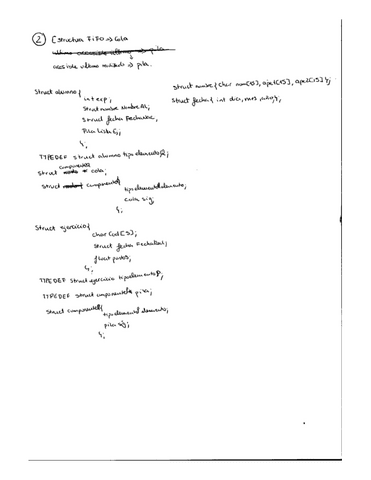 ② Estructura FIFO → Cola
último accesible último → pila
accesible último → pila.
struct nombre{ char nom[15], ape1[15], ape2[15] };
struct alumno{
struct fecha{ int dia, mes, año};
int exp;
struct nombre NombreAl;
struct fecha FechaNac;
Pila Lista E;
};
TYPEDEF struct alumno tipoelementoQ;
componenteQ
struct * cola;
struct componenteQ{
tipoelementoQ elemento;
cola sig;
};
struct ejercicio{
char Cod[5];
struct fecha FechaReal;
float puntos;
};
TYPEDEF struct ejercicio tipoelementoP;
TYPEDEF struct componenteP* pila;
struct componenteP{
tipoelementoP elemento;
pila sig;
};